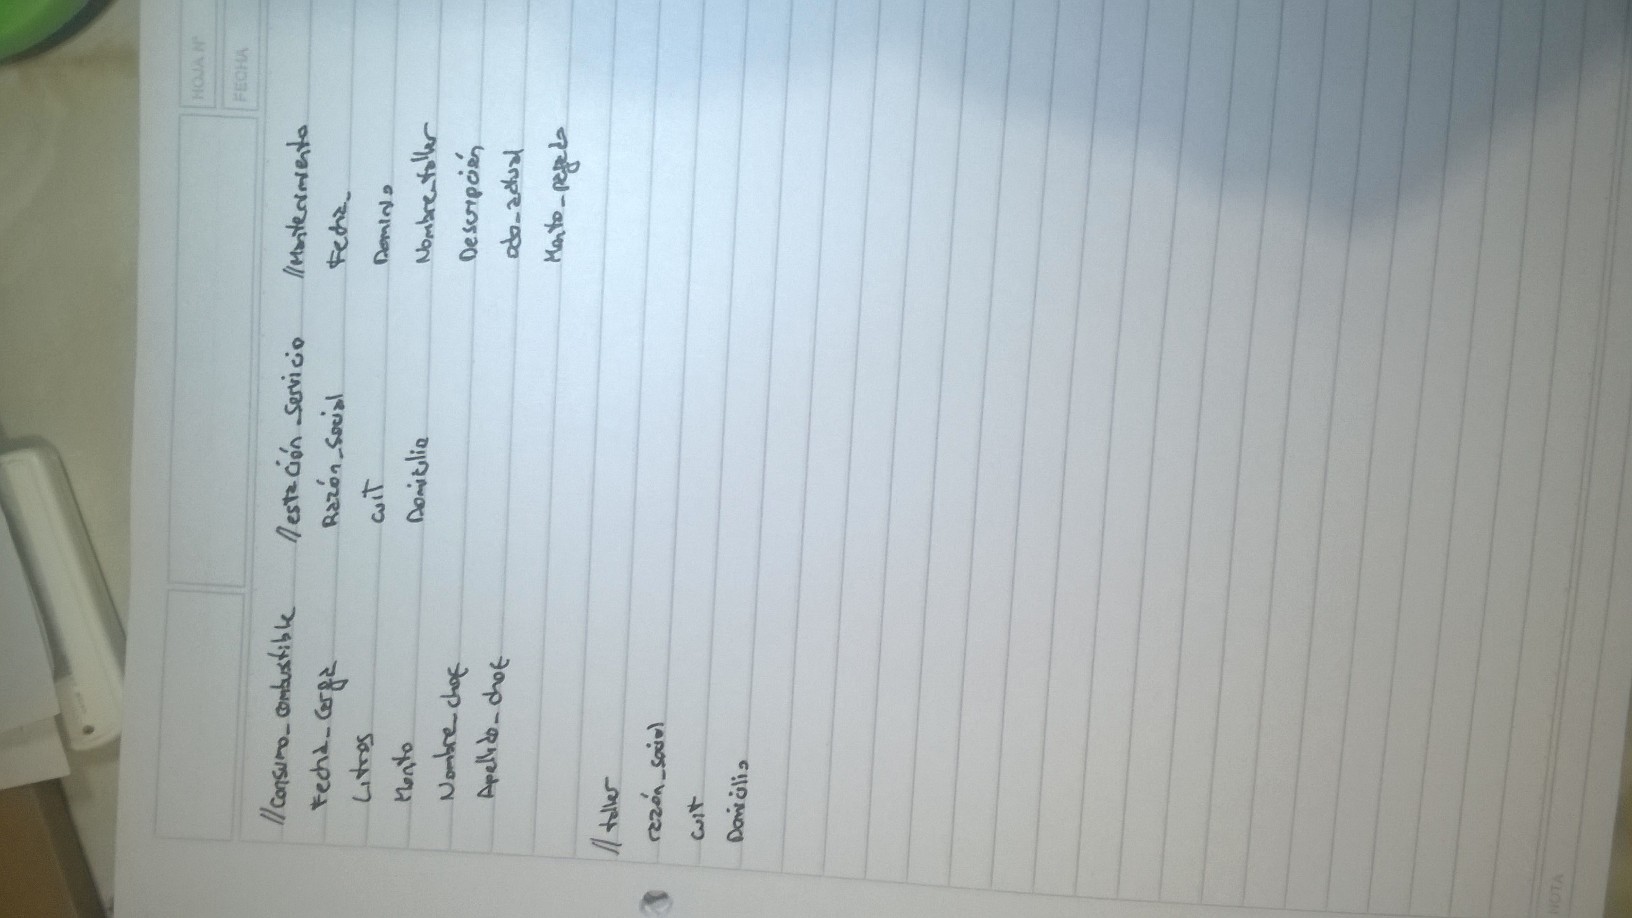 HOJA N°
FECHA
//Consumo_combustible
Fecha_Carga
Litros
Monto
Nombre_chof
Apellido_chof
//estación_servicio
Razón_social
cuit
Domicilio
//Mantenimiento
Fecha_
Dominio
Nombre_taller
Descripción
odo_actual
Monto_pagado
//taller
razón_social
cuit
Domicilio
NOTA